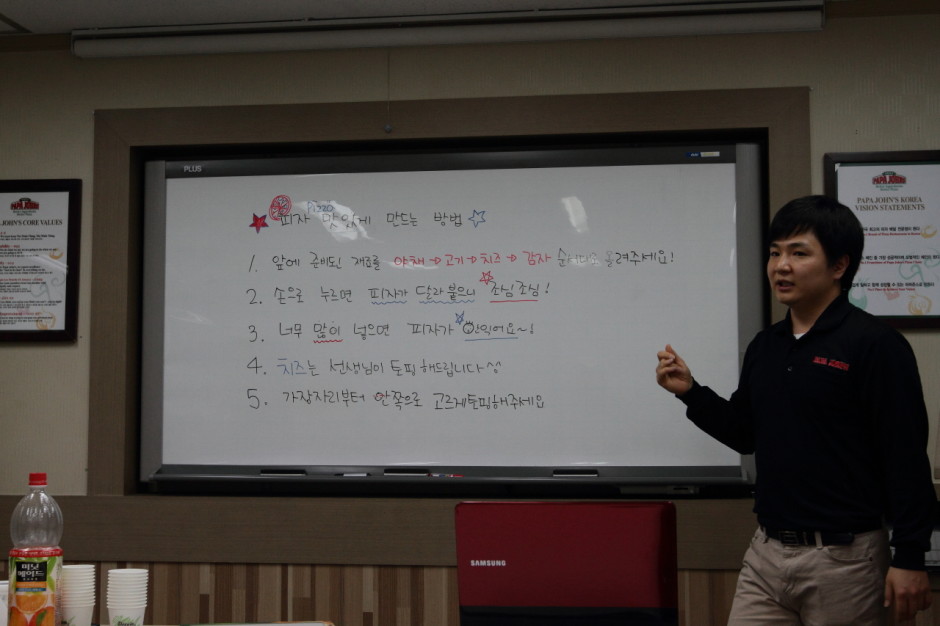 PLUS
Pizza
피자 맛있게 만드는 방법
1. 앞에 준비된 재료를 야채 → 고기 → 치즈 → 감자 순서대로 올려주세요!
2. 손으로 누르면 피자가 달라 붙으니 조심조심!
3. 너무 많이 넣으면 피자가 안익어요~!
4. 치즈는 선생님이 토핑해드립니다^^
5. 가장자리부터 안쪽으로 고르게토핑해주세요
PAPA JOHNS
JOHN'S CORE VALUES
PAPA JOHNS
PAPA JOHN'S KOREA
VISION STATEMENTS
PAPA JOHNS
SAMSUNG
미닛
메이드